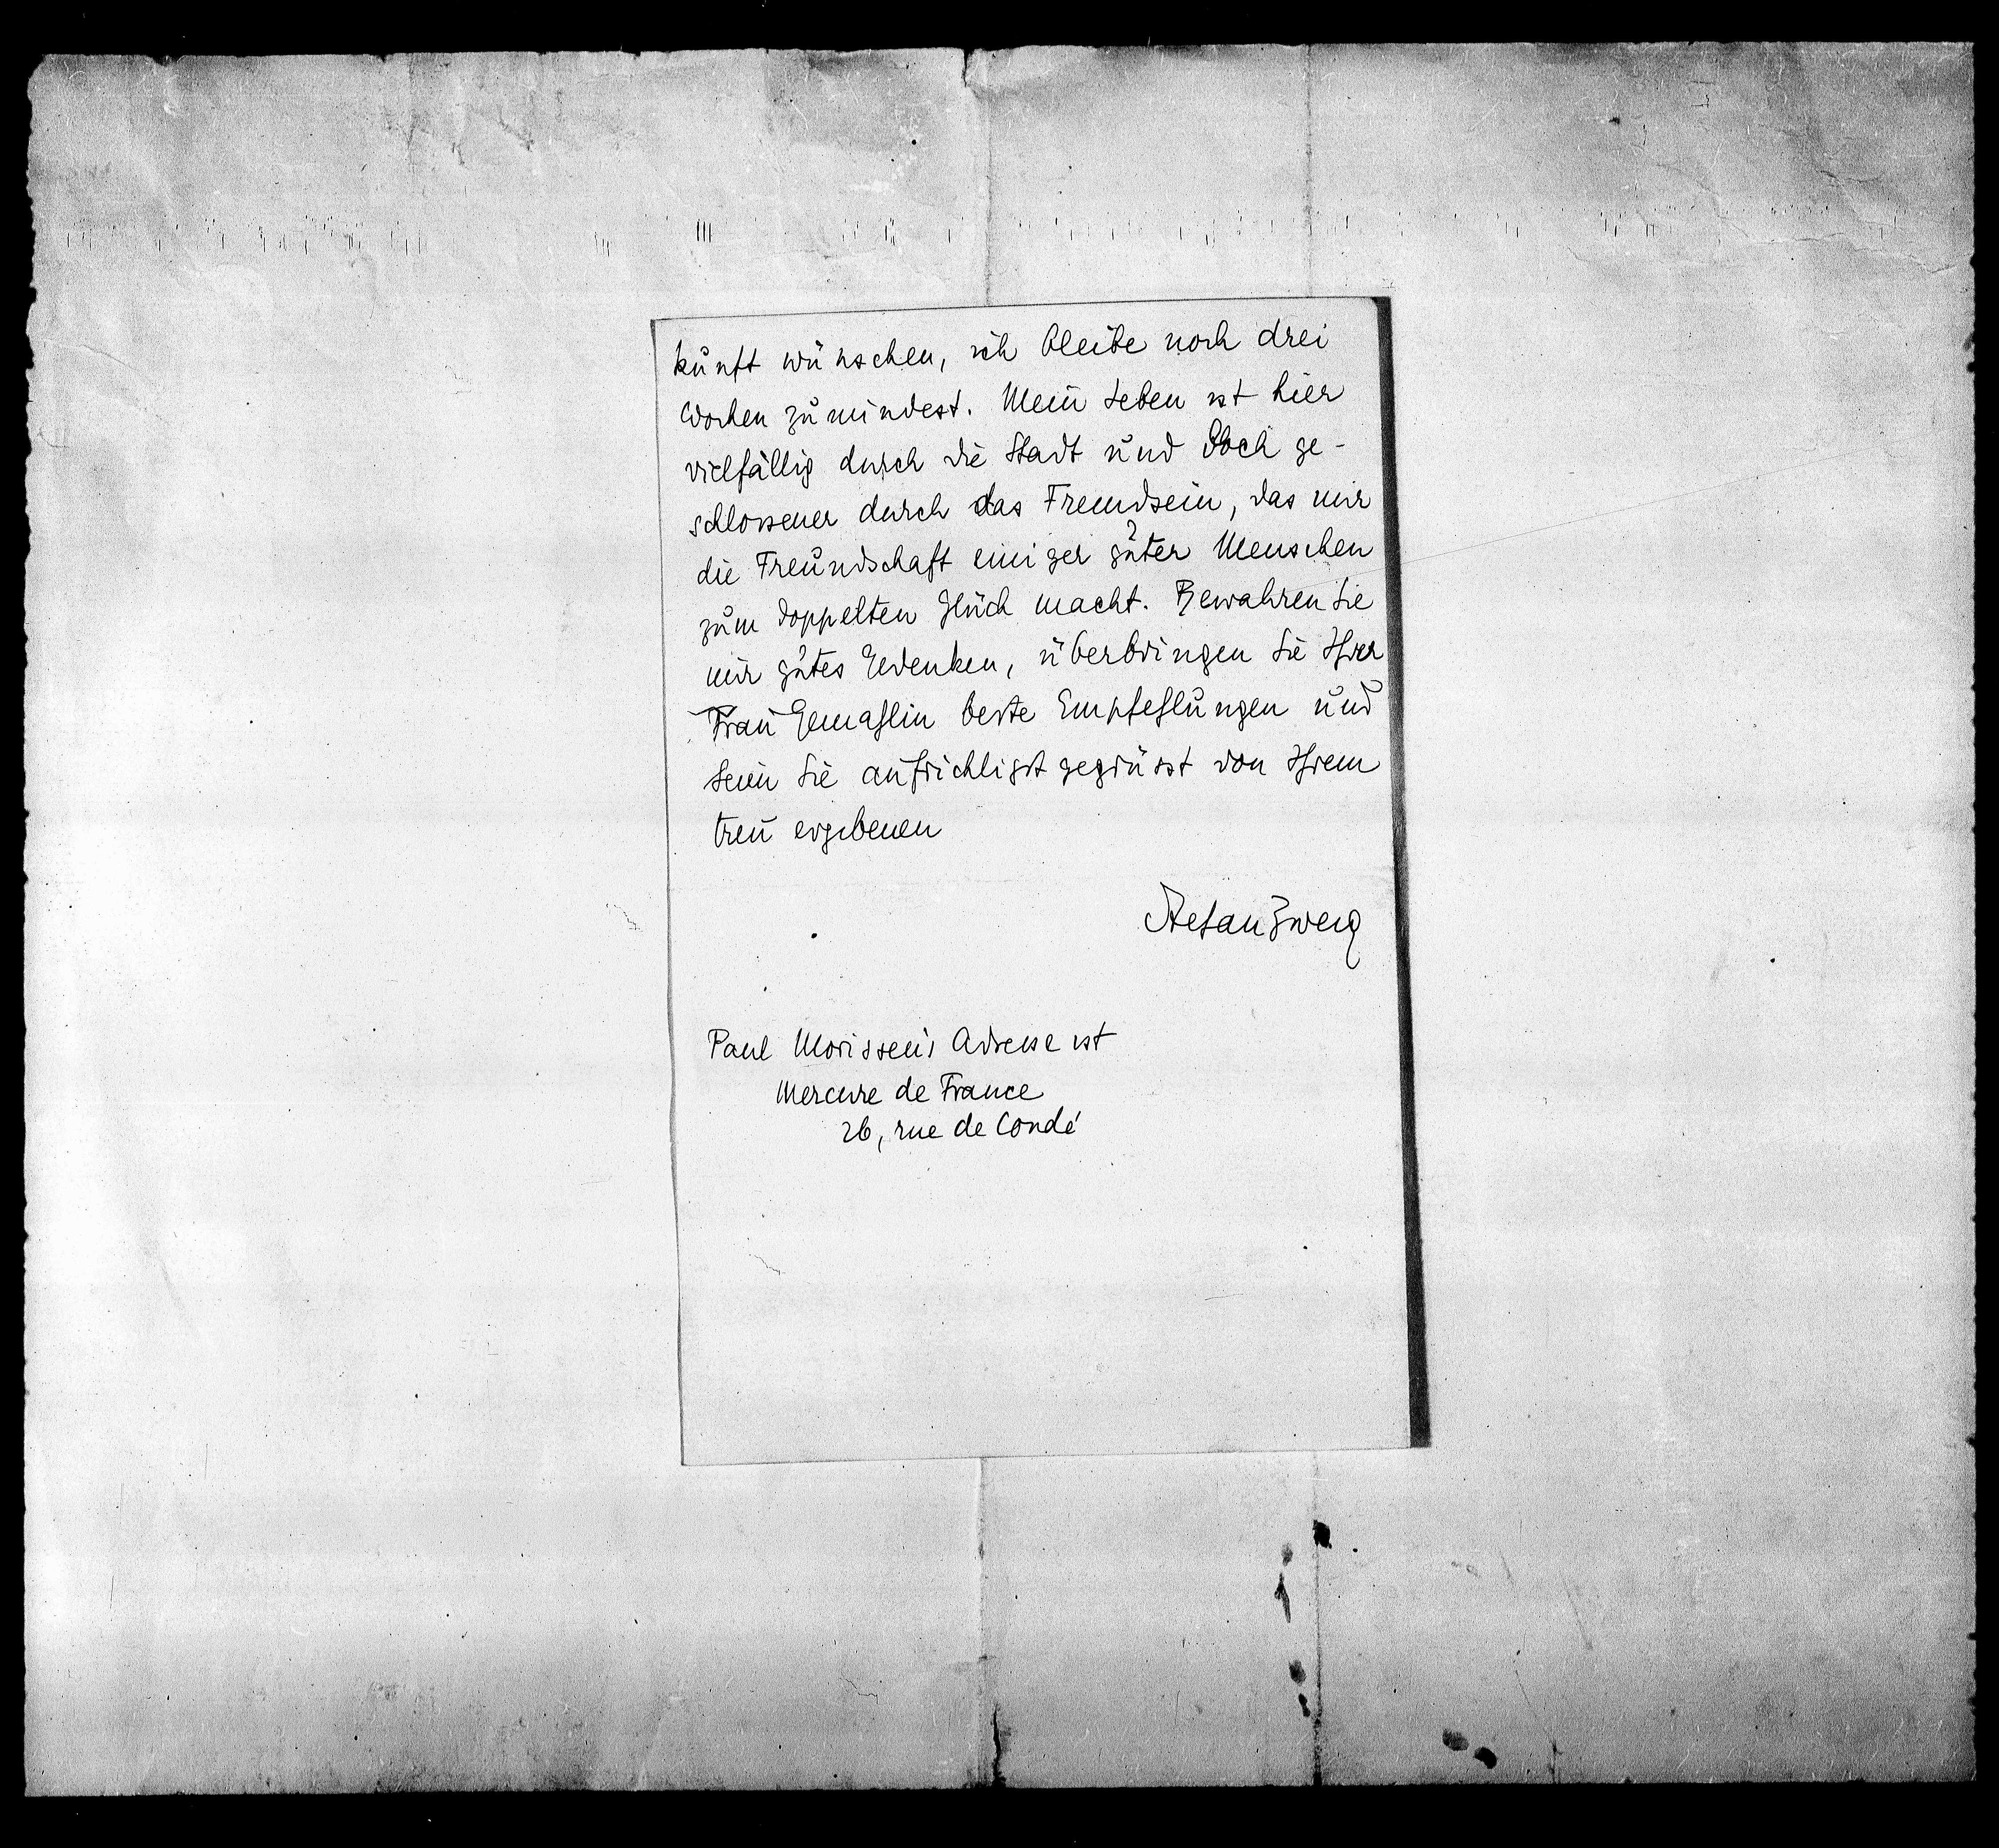 kunft wünschen, ich bleibe noch drei
Wochen zumindest. Mein Leben ist hier
vielfällig durch die Stadt und doch ge-
schlossener durch das Fremdsein, das mir
die Freundschaft einiger guter Menschen
zum doppelten Glück macht. Bewahren Sie
mir gutes Gedenken, überbringen Sie Ihrer
Frau Gemahlin beste Empfehlungen und
seien Sie aufrichtigst gegrüsst von Ihrem
treu ergebenen
Stefan Zweig
Paul Morisse's Adresse ist
Mercure de France
26, rue de Condé